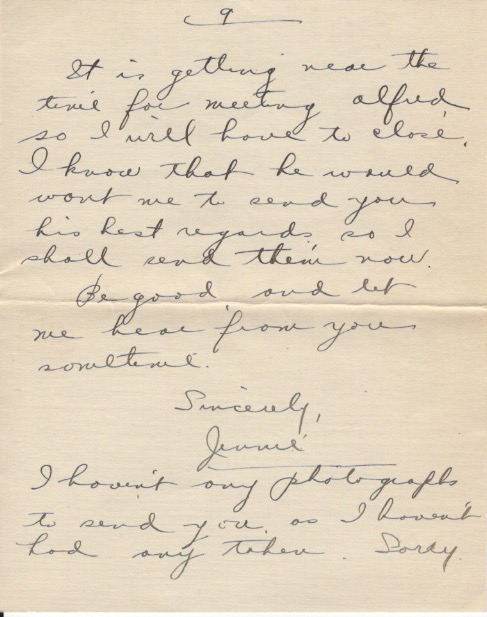 9
It is getting near the
time for meeting Alfred
so I will have to close.
I know that he would
want me to send you
his best regards so I
shall send them now.
Be good, and let
me hear from you
sometime.
Sincerely,
Jennie
I haven't any photographs
to send you, as I haven't
had any taken. Sorry.